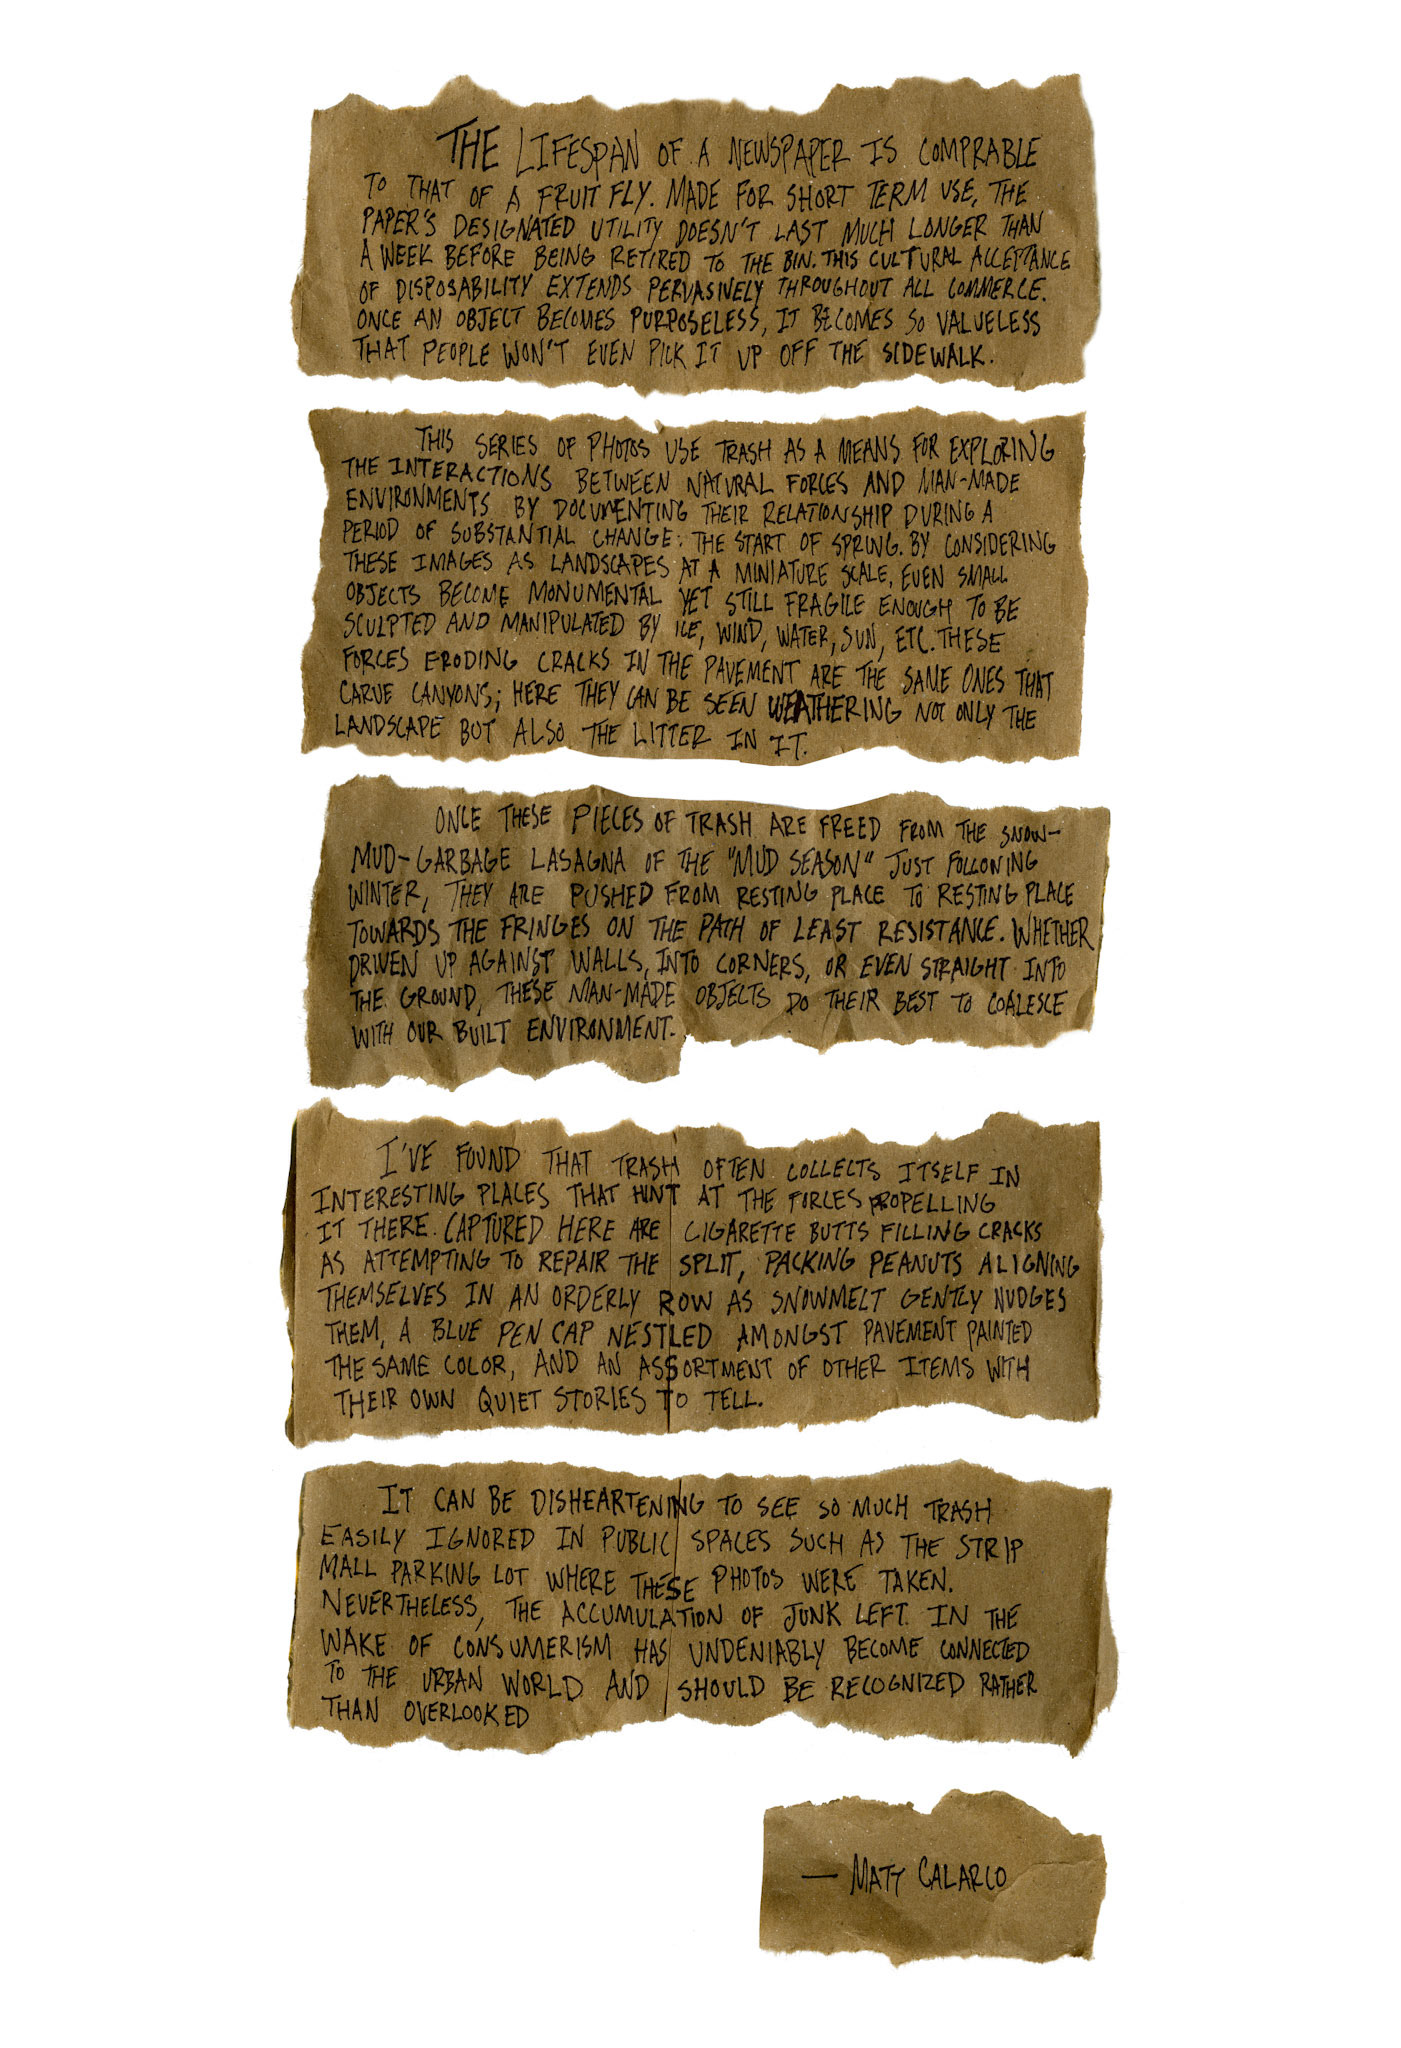 THE LIFESPAN OF A NEWSPAPER IS COMPRABLE
TO THAT OF A FRUIT FLY. MADE FOR SHORT TERM USE, THE
PAPER'S DESIGNATED UTILITY DOESN'T LAST MUCH LONGER THAN
A WEEK BEFORE BEING RETIRED TO THE BIN. THIS CULTURAL ACCEPTANCE
OF DISPOSABILITY EXTENDS PERVASIVELY THROUGHOUT ALL COMMERCE.
ONCE AN OBJECT BECOMES PURPOSELESS, IT BECOMES SO VALUELESS
THAT PEOPLE WON'T EVEN PICK IT UP OFF THE SIDEWALK.
THIS SERIES OF PHOTOS USE TRASH AS A MEANS FOR EXPLORING
THE INTERACTIONS BETWEEN NATURAL FORCES AND MAN-MADE
ENVIRONMENTS BY DOCUMENTING THEIR RELATIONSHIP DURING A
PERIOD OF SUBSTANTIAL CHANGE: THE START OF SPRING. BY CONSIDERING
THESE IMAGES AS LANDSCAPES AT A MINIATURE SCALE, EVEN SMALL
OBJECTS BECOME MONUMENTAL YET STILL FRAGILE ENOUGH TO BE
SCULPTED AND MANIPULATED BY ICE, WIND, WATER, SUN, ETC. THESE
FORCES ERODING CRACKS IN THE PAVEMENT ARE THE SAME ONES THAT
CARVE CANYONS; HERE THEY CAN BE SEEN WEATHERING NOT ONLY THE
LANDSCAPE BUT ALSO THE LITTER IN IT.
ONCE THESE PIECES OF TRASH ARE FREED FROM THE SNOW-
MUD-GARBAGE LASAGNA OF THE "MUD SEASON" JUST FOLLOWING
WINTER, THEY ARE PUSHED FROM RESTING PLACE TO RESTING PLACE
TOWARDS THE FRINGES ON THE PATH OF LEAST RESISTANCE. WHETHER
DRIVEN UP AGAINST WALLS, INTO CORNERS, OR EVEN STRAIGHT INTO
THE GROUND, THESE MAN-MADE OBJECTS DO THEIR BEST TO COALESCE
WITH OUR BUILT ENVIRONMENT.
I'VE FOUND THAT TRASH OFTEN COLLECTS ITSELF IN
INTERESTING PLACES THAT HINT AT THE FORCES PROPELLING
IT THERE. CAPTURED HERE ARE CIGARETTE BUTTS FILLING CRACKS
AS ATTEMPTING TO REPAIR THE SPLIT, PACKING PEANUTS ALIGNING
THEMSELVES IN AN ORDERLY ROW AS SNOWMELT GENTLY NUDGES
THEM, A BLUE PEN CAP NESTLED AMONGST PAVEMENT PAINTED
THE SAME COLOR, AND AN ASSORTMENT OF OTHER ITEMS WITH
THEIR OWN QUIET STORIES TO TELL.
IT CAN BE DISHEARTENING TO SEE SO MUCH TRASH
EASILY IGNORED IN PUBLIC SPACES SUCH AS THE STRIP
MALL PARKING LOT WHERE THESE PHOTOS WERE TAKEN.
NEVERTHELESS, THE ACCUMULATION OF JUNK LEFT IN THE
WAKE OF CONSUMERISM HAS UNDENIABLY BECOME CONNECTED
TO THE URBAN WORLD AND SHOULD BE RECOGNIZED RATHER
THAN OVERLOOKED
— MATT CALARCO